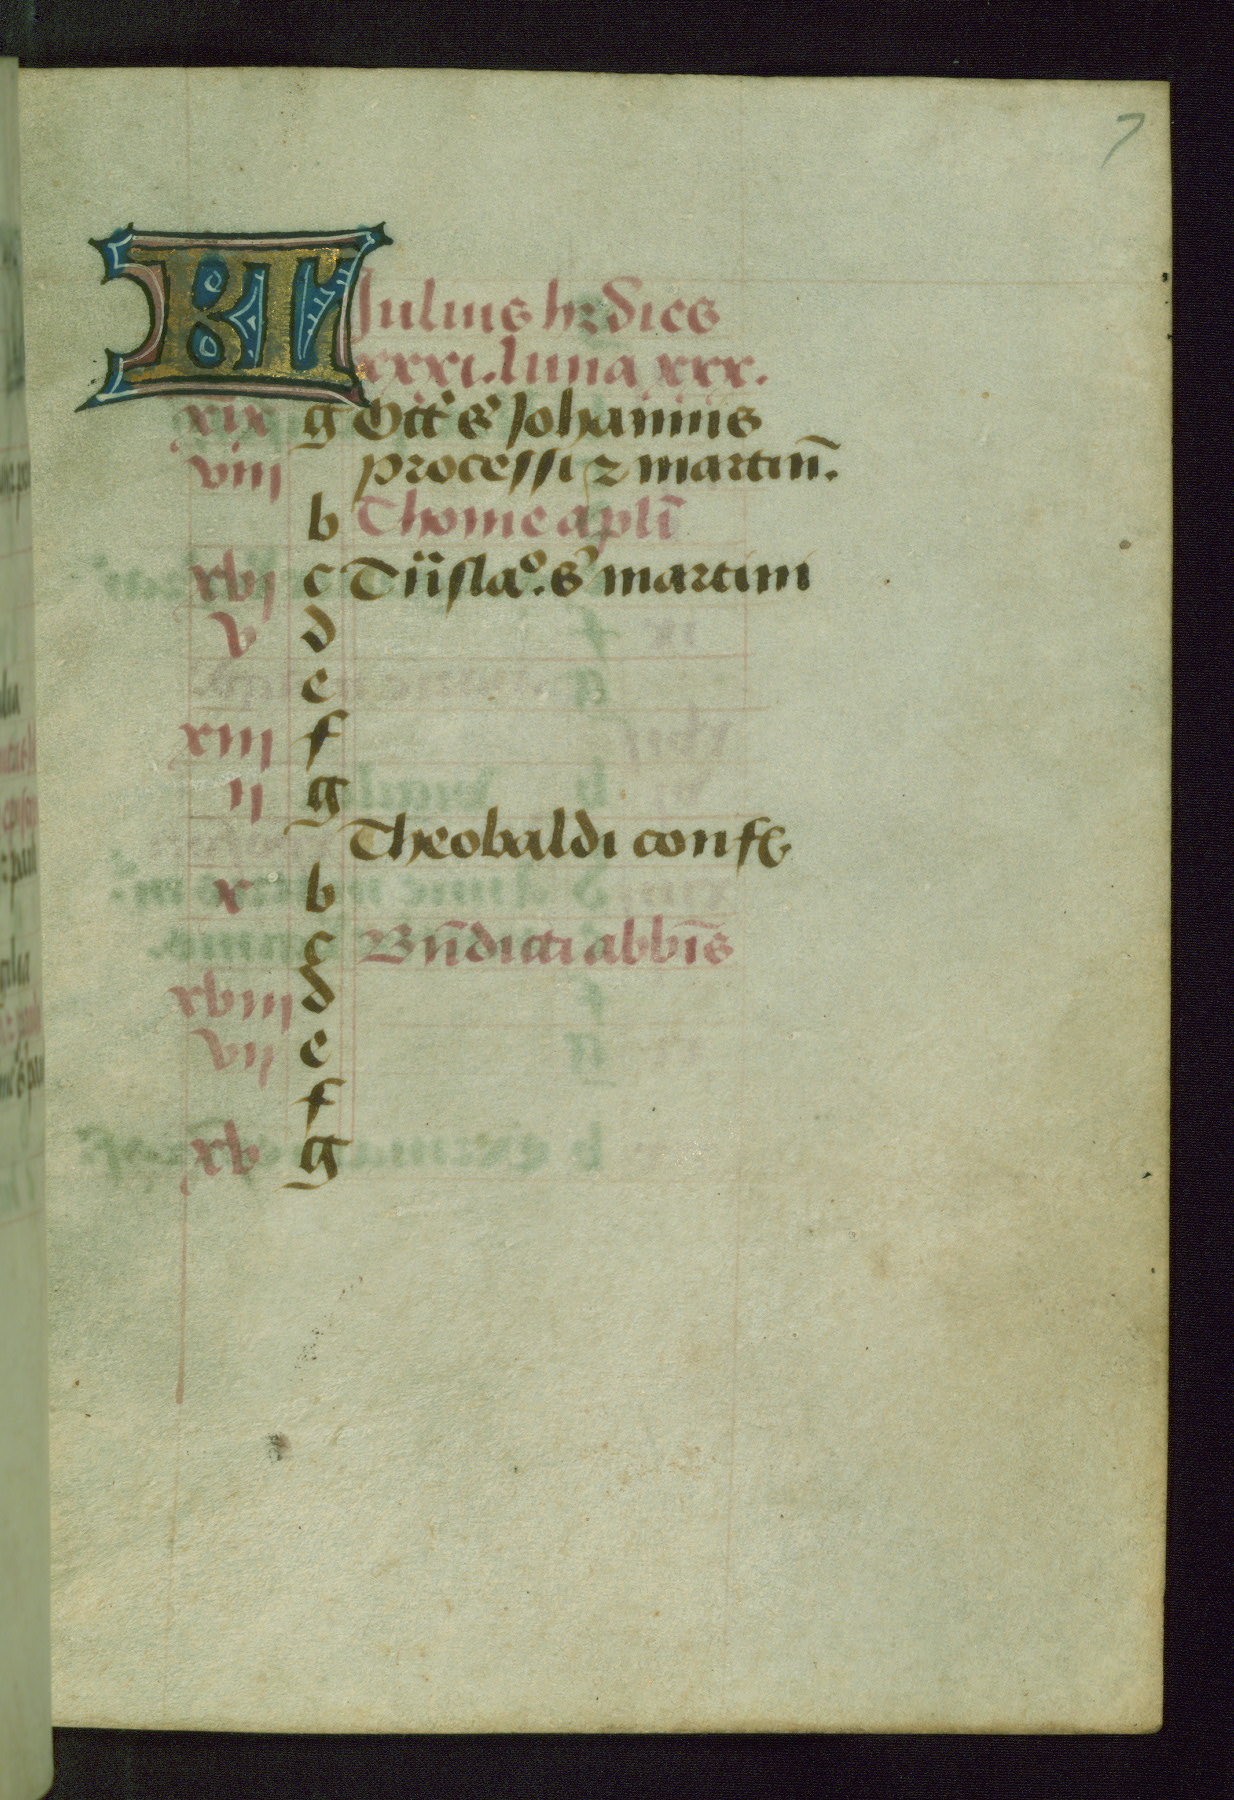 7
KL Julius hr dies
xxxi. luna xxx.
xix g Oct̄ s' Johannis
viii processi ⁊ martin̄.
b Thome apl̄i
xvij c Trāsla°. s' martini
v d
e
xiij f
ij g
Theobaldi confes
x b
c Bn̄dicti abb̄is
xviij d
vij e
f
xv g